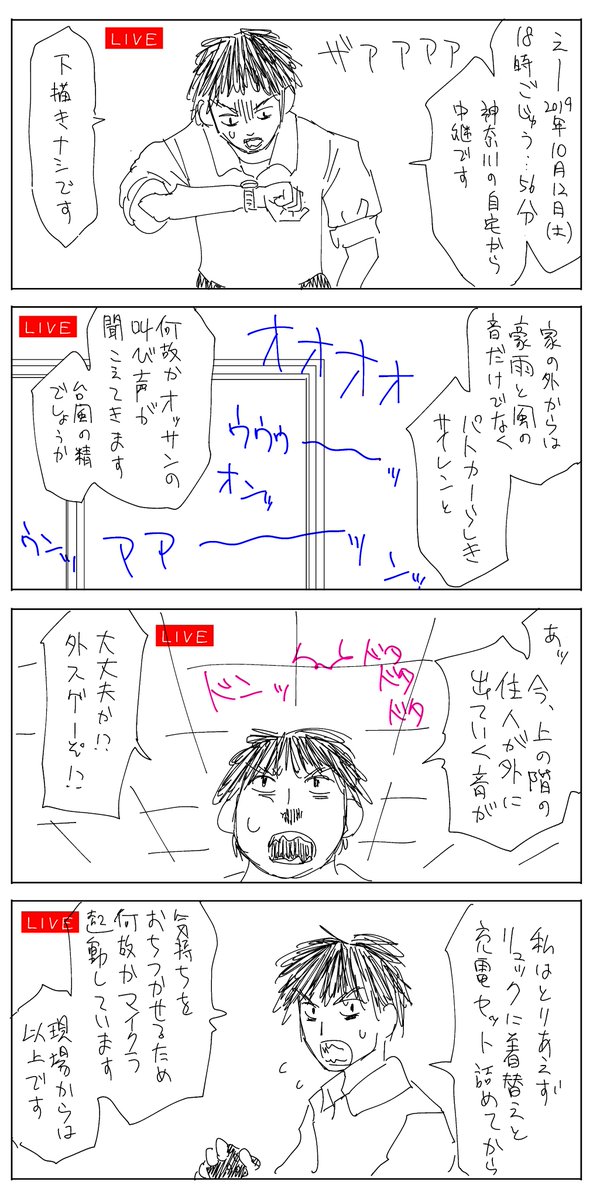 LIVE
ザアアアア
えー2019年10月12日(土)
18時ごじゅう…56分
神奈川の自宅から
中継です
下描きナシです
LIVE
家の外からは
豪雨と風の
音だけでなく
パトカーらしき
サイレンと
オオオオ
ウウウ〜ッ
オンッ
ウンッ
アア〜ッ
ンッ
何故かオッサンの
叫び声が
聞こえてきます
台風の精
でしょうか
LIVE
あッ
今、上の階の
住人が外に
出ていく音が
ドタ
ドタ
ドタ
ドンッ
大丈夫か!?
外スゲーぞ!?
LIVE
私はとりあえず
リュックに着替えと
充電セット詰めてから
気持ちを
おちつかせるため
何故かマイクラ
起動しています
現場からは
以上です